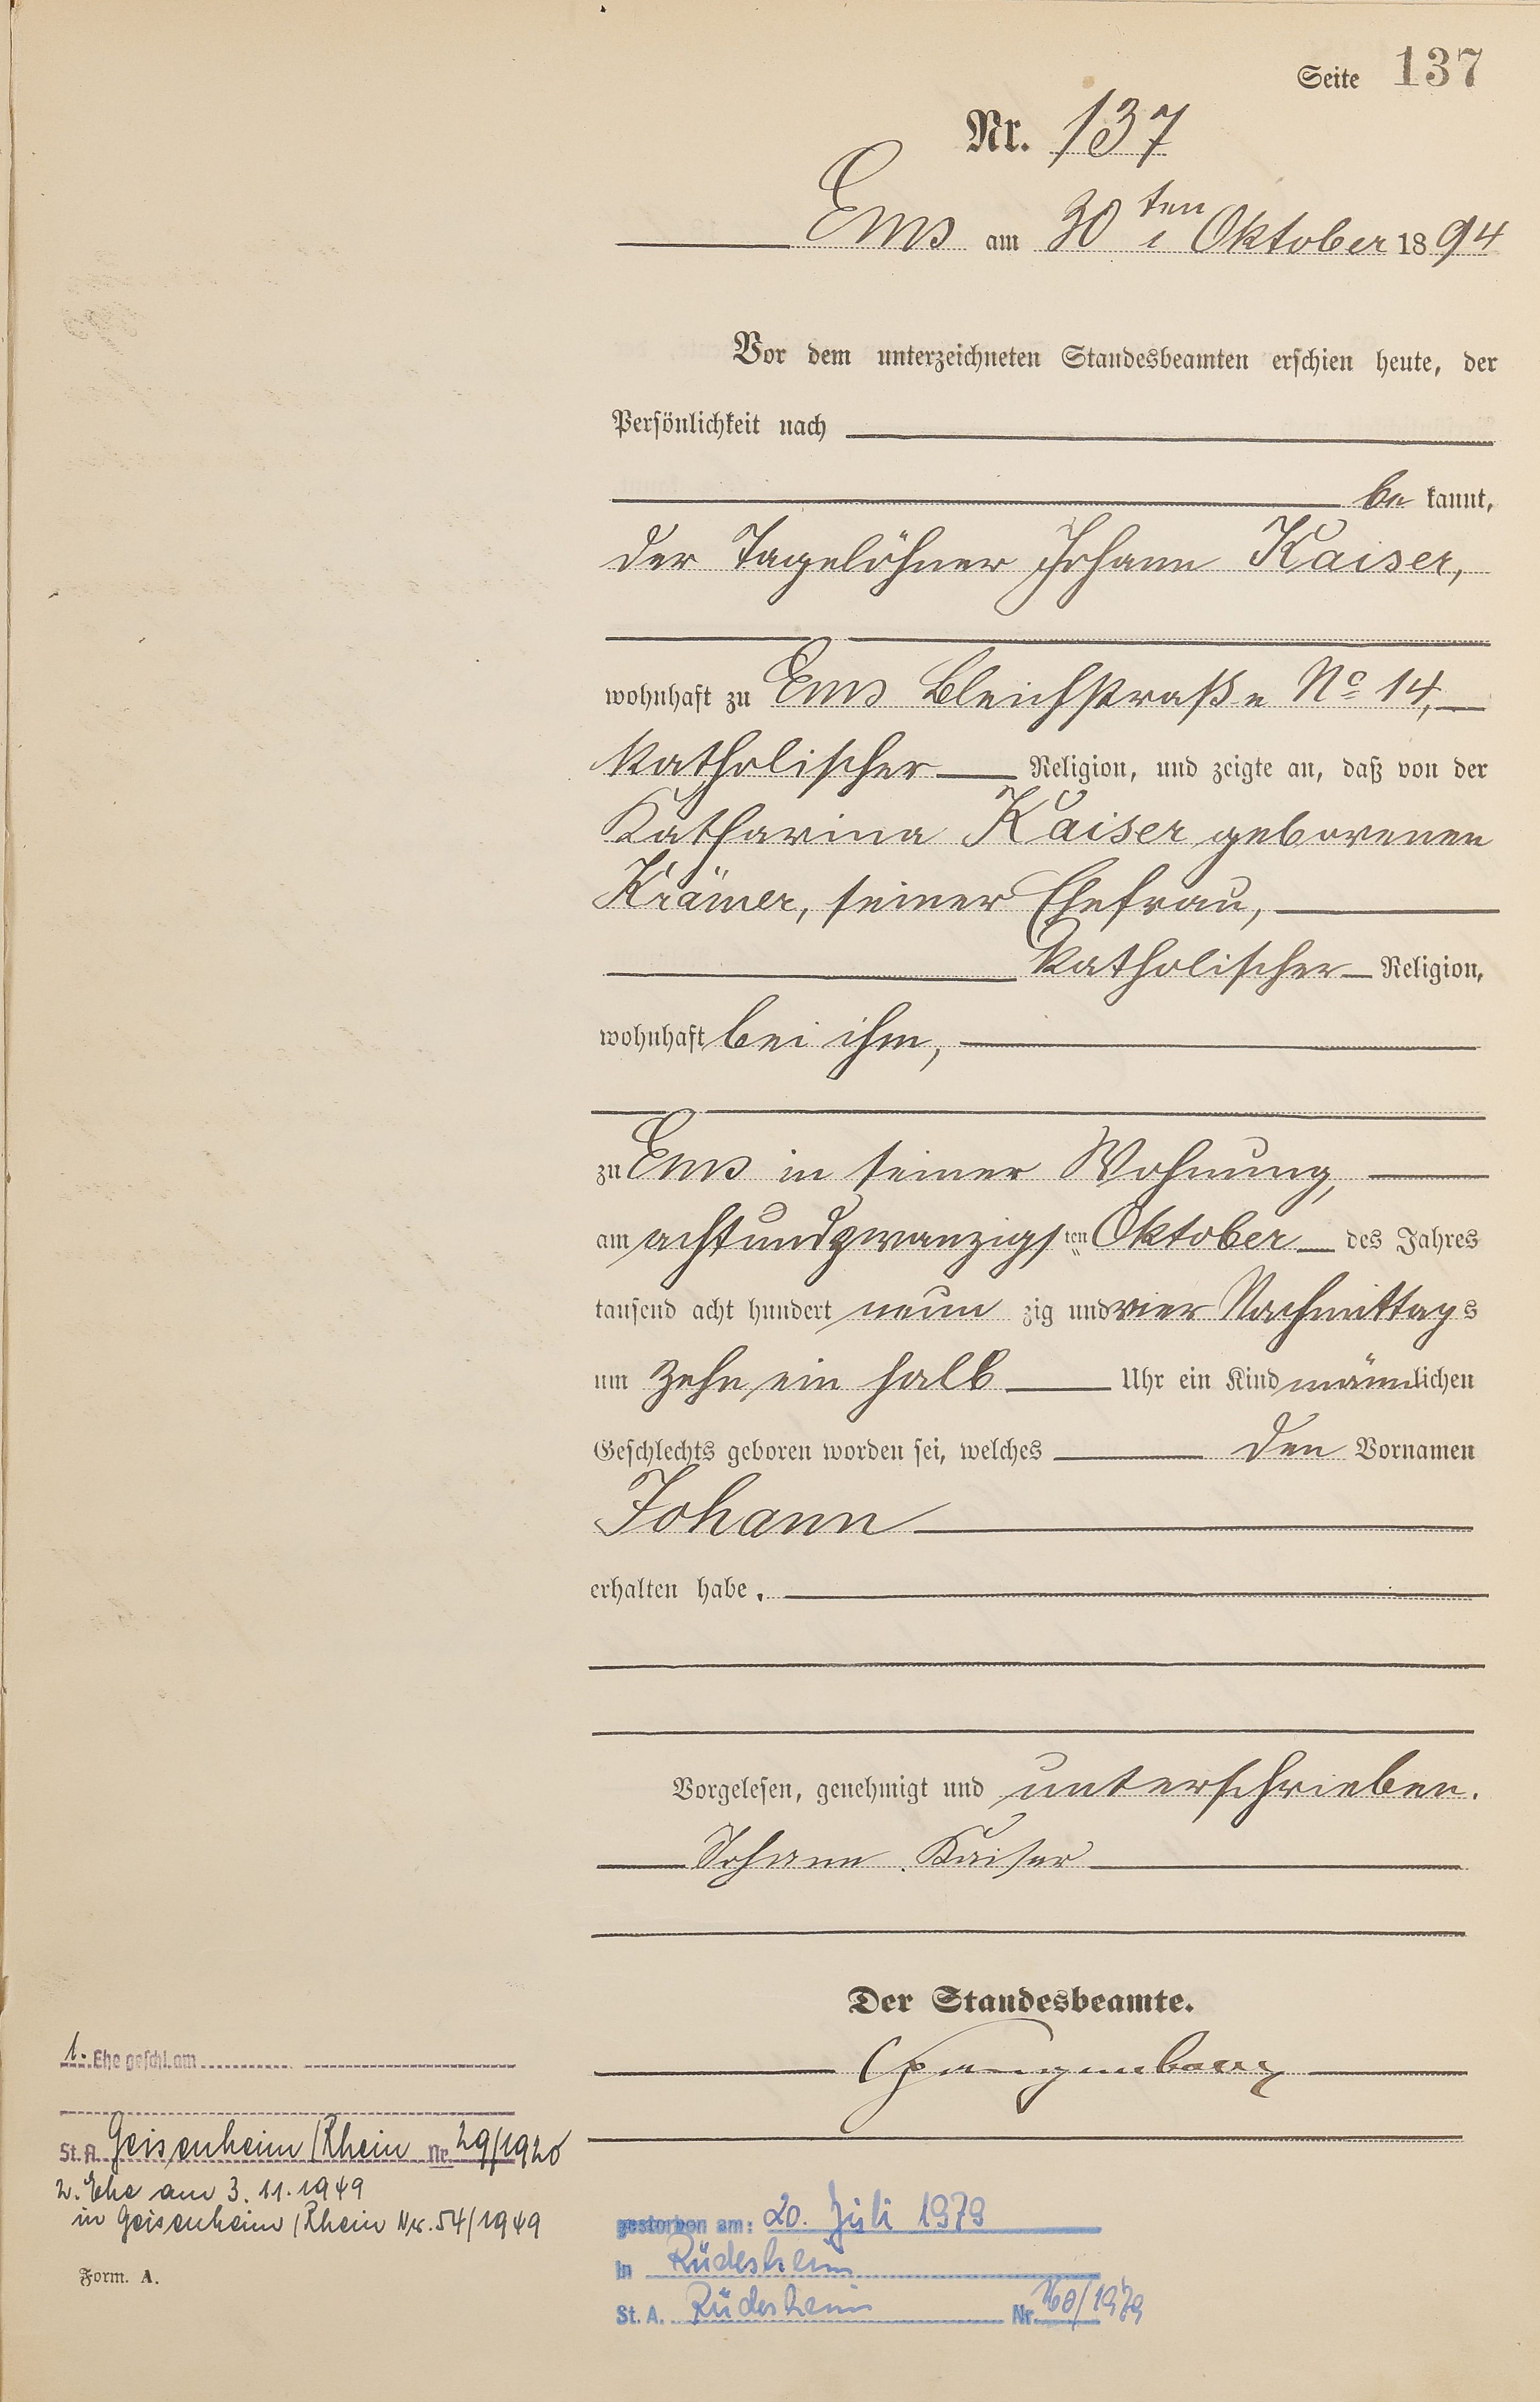 Seite 137
Nr. 137
Ems am 30ten Oktober 1894
Vor dem unterzeichneten Standesbeamten erschien heute, der
Persönlichkeit nach
be kannt,
der Tagelöhner Johann Kaiser,
wohnhaft zu Ems Bleichstraße No 14,
katholischer Religion, und zeigte an, daß von der
Katharina Kaiser geborenen
Krämer, seiner Ehefrau,
katholischer Religion,
wohnhaft bei ihm,
zu Ems in seiner Wohnung,
am achtundzwanzigsten Oktober des Jahres
tausend acht hundert neun zig und vier Nachmittags
um zehn ein halb Uhr ein Kind männlichen
Geschlechts geboren worden sei, welches den Vornamen
Johann
erhalten habe.
Vorgelesen, genehmigt und unterschrieben.
Johann Kaiser
Der Standesbeamte.
Spangenberg
1. Ehe geschl. am
St. A. Geisenheim/Rhein Nr. 29/1920
2. Ehe am 3.11.1949
in Geisenheim/Rhein Nr. 54/1949
Form. A.
gestorben am: 20. Juli 1979
in Rüdesheim
St. A. Rüdesheim Nr. 160/1979